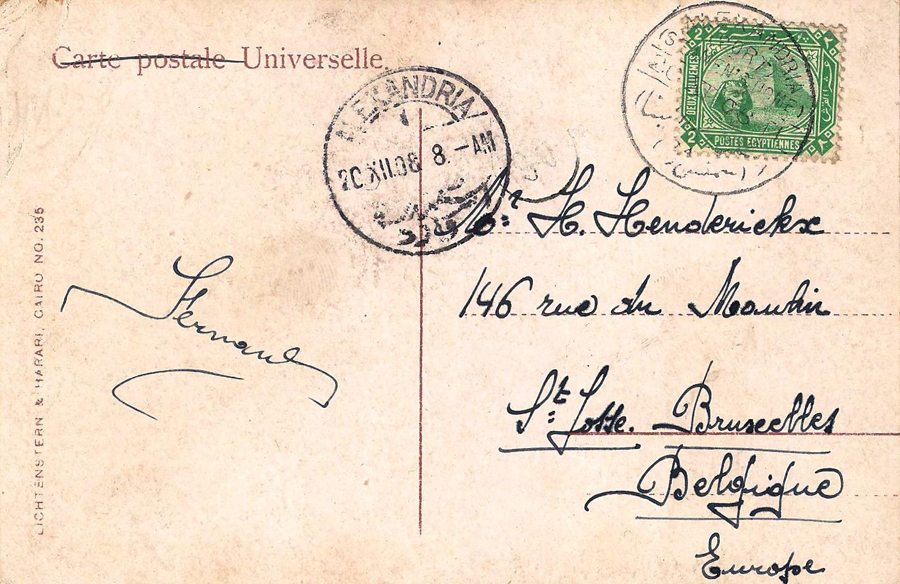 Carte postale Universelle.
ALEXANDRIA
20 XII.08 8.-AM
DEUX MILLIEMES
2
2
2
POSTES EGYPTIENNES
Mr. H. Henderickx
146 rue du Moulin
St. Josse. Bruxelles
Belgique
Europe
Fernand
LICHTENSTERN & HARARI, CAIRO NO. 235